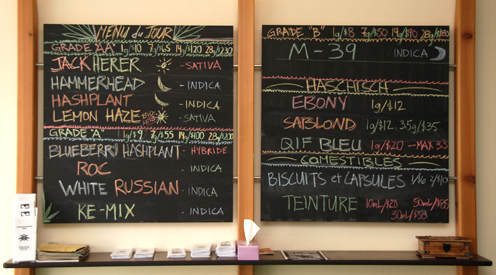 MENU du JOUR
GRADE "AA" 1g/10 7g/65 14g/120 28g/230
JACK HERER - SATIVA
HAMMERHEAD - INDICA
HASHPLANT - INDICA
LEMON HAZE - SATIVA
GRADE "A" 1g/$9 7g/55 14g/100 28g/$200
BLUEBERRY HASHPLANT - HYBRIDE
ROC - INDICA
WHITE RUSSIAN - INDICA
KE-MIX - INDICA
GRADE "B" 1g/$8 7g/$50 14g/$90
M-39 INDICA
HASCHISCH
EBONY 1g/$12
SABLOND 1g/$12, 3.5g/$35
QIF BLEU 1g/$20 - MAX 3.5
COMESTIBLES
BISCUITS et CAPSULES
TEINTURE 10mL/$20